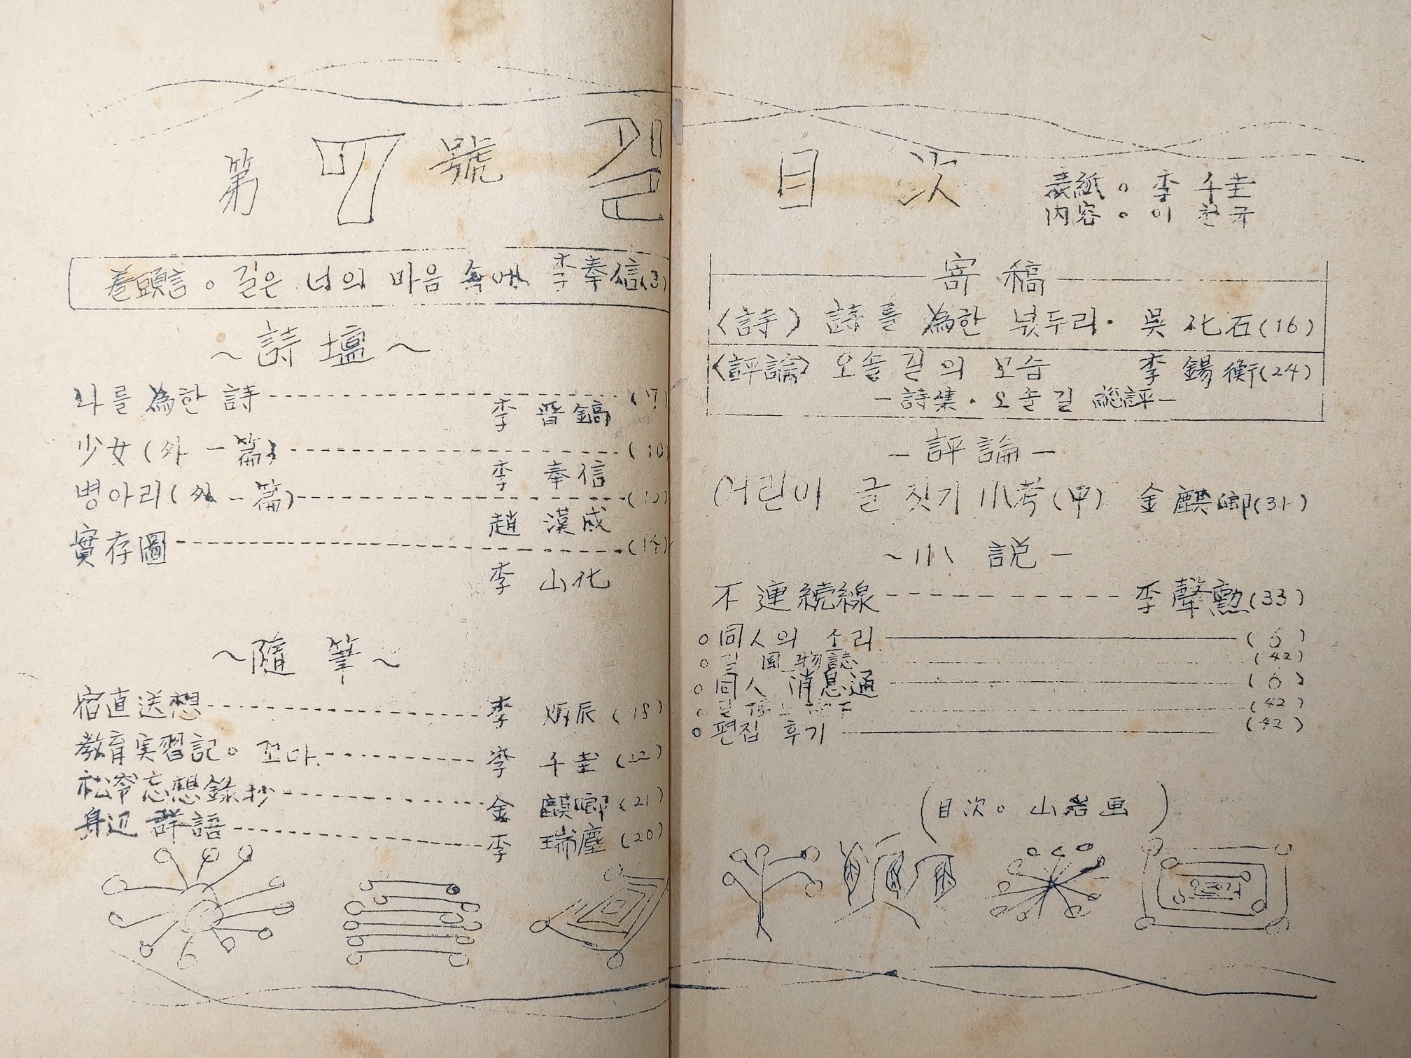 第 7 號 길 目 次
表紙。李 千圭
内容。이 천규
卷頭言。길은 너의 마음 속에 李奉信(3)
~詩壇~
나를 爲한 詩 (7)
李 晋鎬
少女(外一篇) (10
李 奉信
병아리(外一篇)
趙 漢成
實存圖 (14)
李 山化
~隨筆~
宿直送想 李 炳辰 (18)
教育実習記。꼬마. 李 千圭 (22)
松岺忘想錄抄 金 麒卿 (21)
身辺群語 李 瑞塵 (20)
寄稿
〈詩〉 詩를 為한 넋두리· 吳 化石(16)
〈評論〉 오솔길의 모습 李 錫衡(24)
-詩集·오솔길 総評-
-評論-
어린이 글짓기 小考(中) 金麒卿(31)
~小說-
不連続線 李聲勲(33)
○同人의 소리
○길 風物誌 (42)
○同人 消息通
(42)
○편집 후기 (42)
(目次。山岩画)